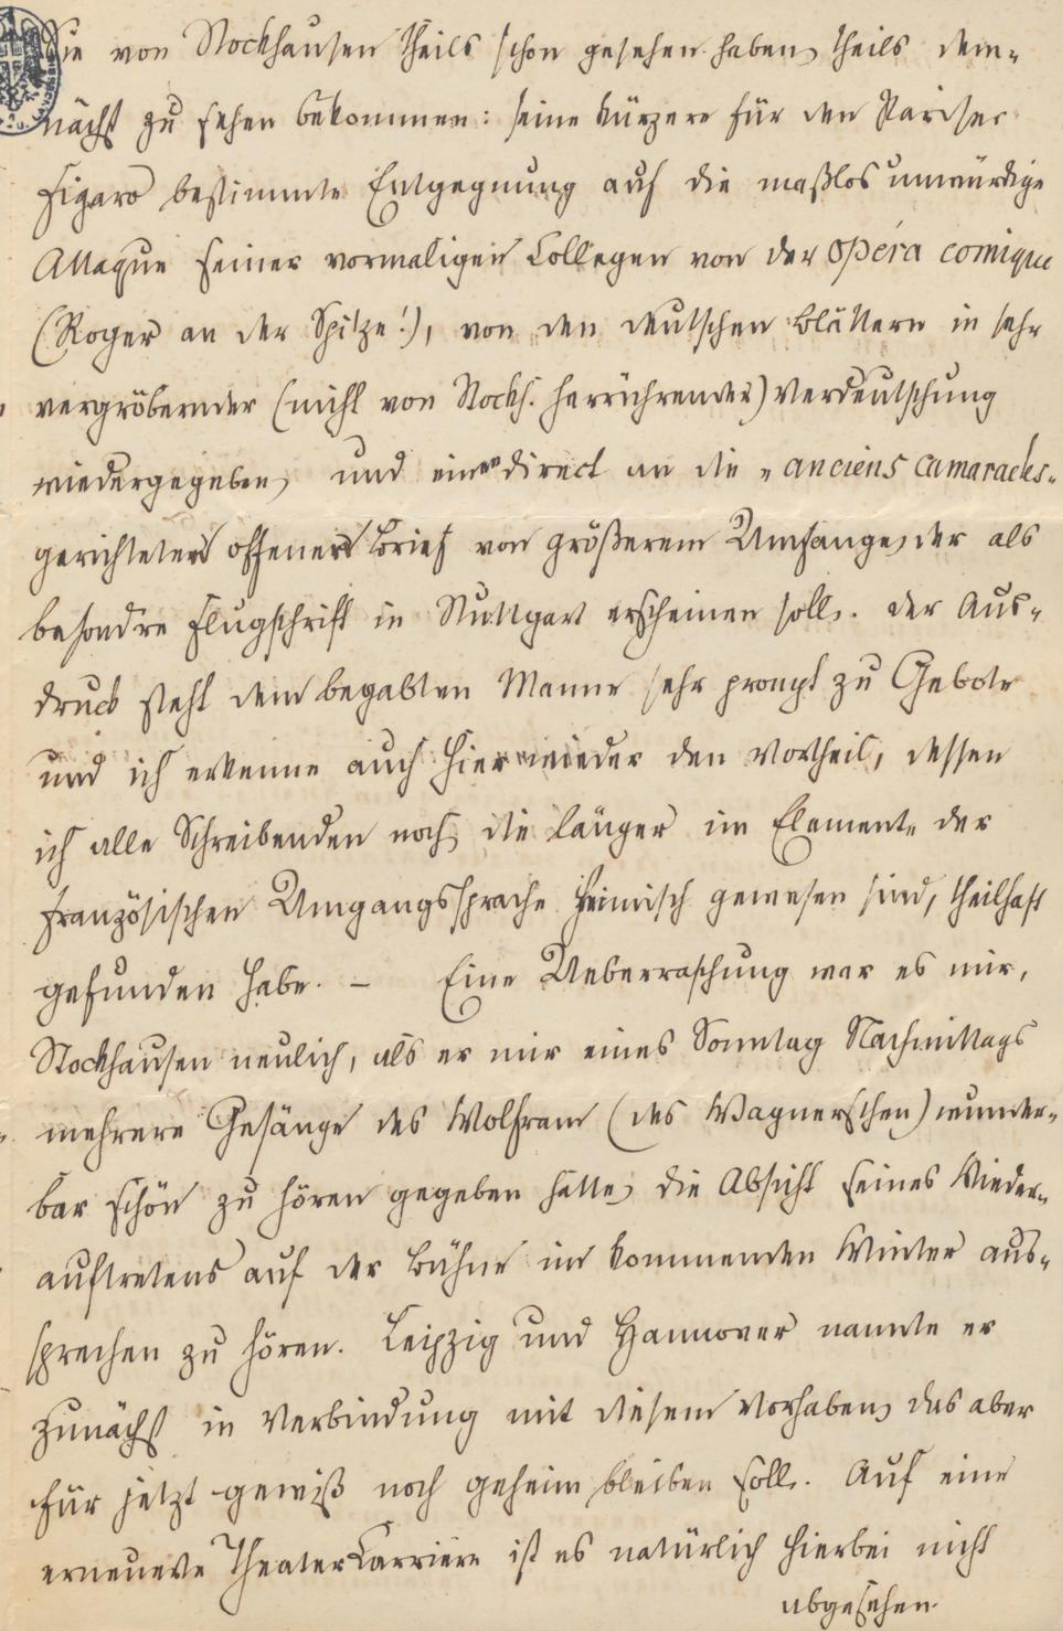 Sie von Stockhausen theils schon gesehen haben, theils dem-
nächst zu sehen bekommen: seine kürzere für den Pariser
Figaro bestimmte Entgegnung auf die maßlos unwürdige
Attaque seiner vormaligen Collegen von der opéra comique
(Roger an der Spitze!), von den deutschen Blättern in sehr
vergröbernder (nicht von Stockh. herrührender) Verdeutschung
wiedergegeben, und einen direct an die „anciens camarades"
gerichteten offenen Brief von größerem Umfange, der als
besondre Flugschrift in Stuttgart erscheinen soll. Der Aus-
druck steht dem begabten Manne sehr prompt zu Gebote
und ich erkenne auch hier wieder den Vortheil, dessen
ich alle Schreibenden noch, die länger im Elemente der
französischen Umgangssprache heimisch gewesen sind, theilhaft
gefunden habe. – Eine Ueberraschung war es mir,
Stockhausen neulich, als er mir eines Sonntag Nachmittags
mehrere Gesänge des Wolfram (des Wagnerschen) wunder-
bar schön zu hören gegeben hatte, die Absicht seines Wieder-
auftretens auf der Bühne im kommenden Winter aus-
sprechen zu hören. Leipzig und Hannover nannte er
zunächst in Verbindung mit diesem Vorhaben, das aber
für jetzt gewiß noch geheim bleiben soll. Auf eine
erneuerte Theater Carriere ist es natürlich hierbei nicht
abgesehen.